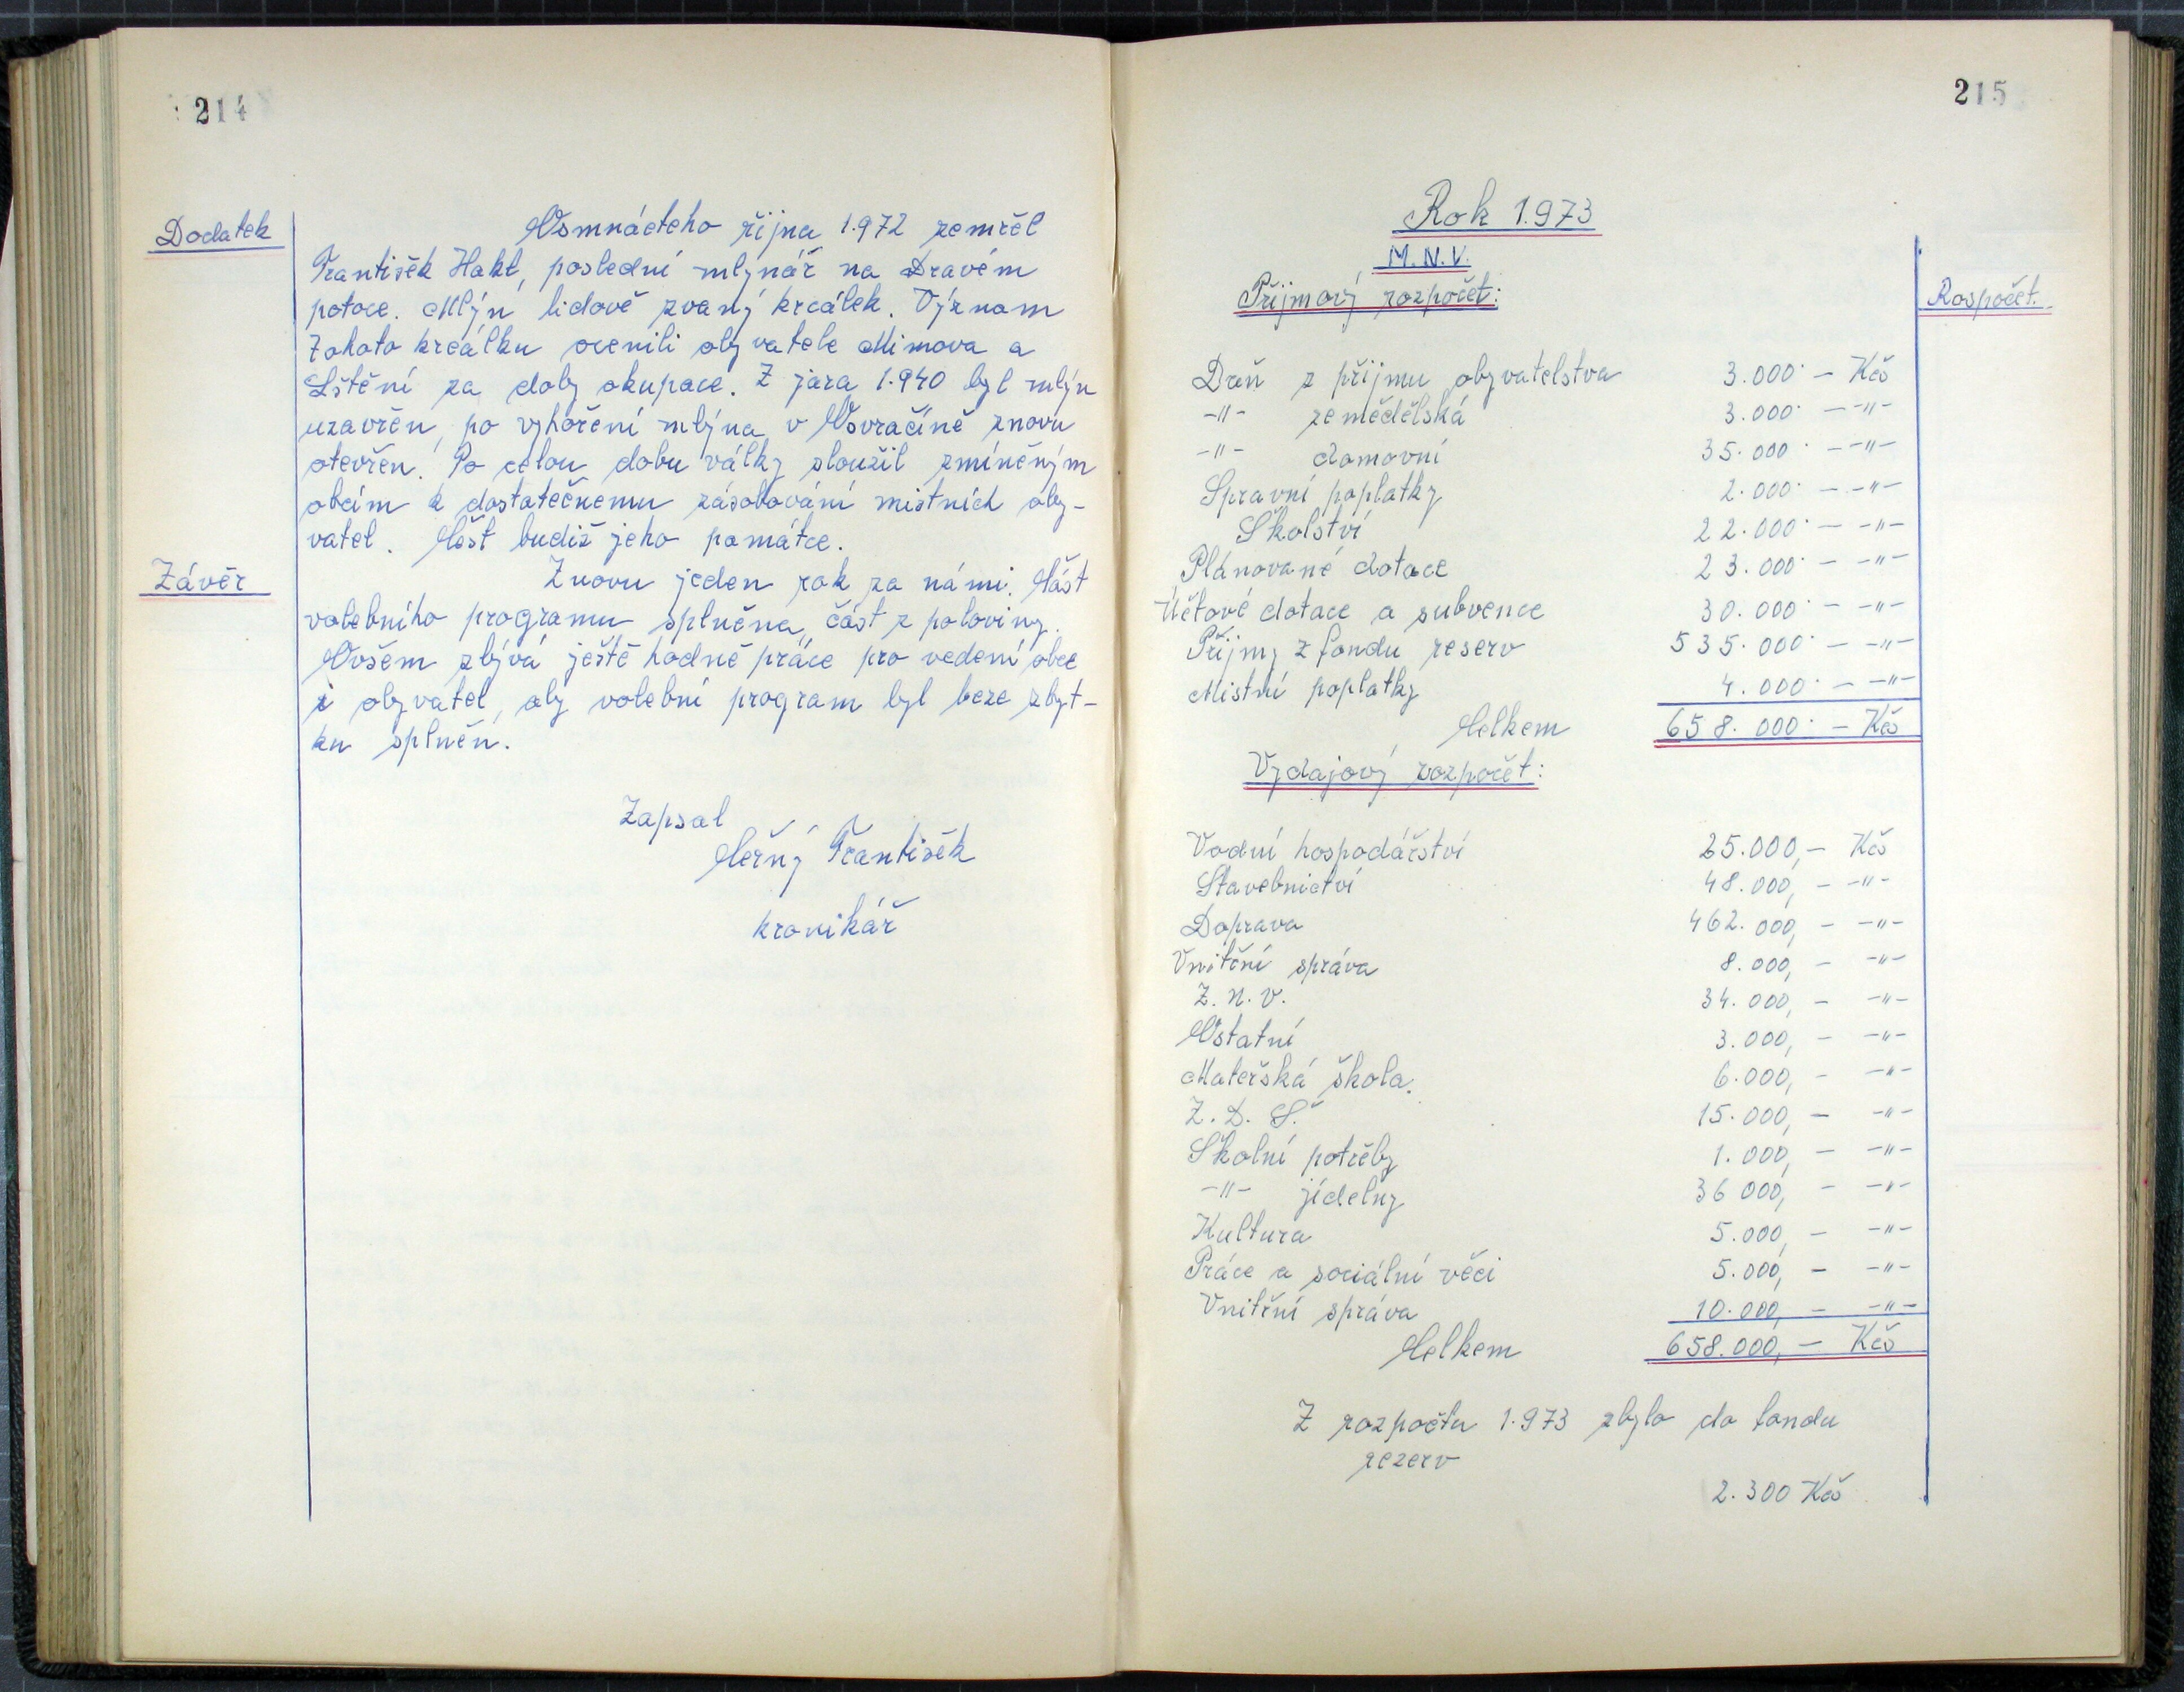 214
Dodatek
Osmnáctého října 1.972 zemřel
František Hakl, poslední mlynář na Dravém
potoce. Mlýn lidově zvaný krcálek. Význam
tohoto krcálku ocenili obyvatele Mimova a
Lštění za doby okupace. Z jara 1.940 byl mlýn
uzavřen, po vyhoření mlýna v Osvračíně znovu
otevřen. Po celou dobu války sloužil zmíněným
obcím k dostatečnemu zásobování mistních oby-
vatel. Čest budiž jeho památce.
Závěr
Znovu jeden rok za námi. Část
volebního programu splněna, část z poloviny.
Ovšem zbývá ještě hodně práce pro vedení obce
i obyvatel, aby volební program byl beze zbyt-
ku splněn.
Zapsal
Černý František
kronikář
215
Rok 1.973
M.N.V.
Příjmový rozpočet:
Rospočet.
Daň z příjmu obyvatelstva 3.000·- Kčs
-"- zemědělská 3.000·- -"-
-"- domovní 35.000·- -"-
Spravní poplatky 2.000·- -"-
Školství 22.000·- -"-
Plánované dotace 23.000·- -"-
Účtové dotace a subvence 30.000·- -"-
Příjmy z fondu reserv 535.000·- -"-
Mistní poplatky 4.000·- -"-
Celkem 658.000·- Kčs
Vydajový rozpočet:
Vodní hospodářství 25.000,- Kčs
Stavebnictví 48.000,- -"-
Doprava 462.000,- -"-
Vnitřní správa 8.000,- -"-
Z.N.V. 34.000,- -"-
Ostatní 3.000,- -"-
Mateřská škola. 6.000,- -"-
Z.D.Š. 15.000,- -"-
Školní potřeby 1.000,- -"-
-"- jídelny 36 000,- -"-
Kultura 5.000,- -"-
Práce a sociální věci 5.000,- -"-
Vnitřní správa 10.000,- -"-
Celkem 658.000,- Kčs
Z rozpočtu 1.973 zbylo do fondu
rezerv
2.300 Kčs